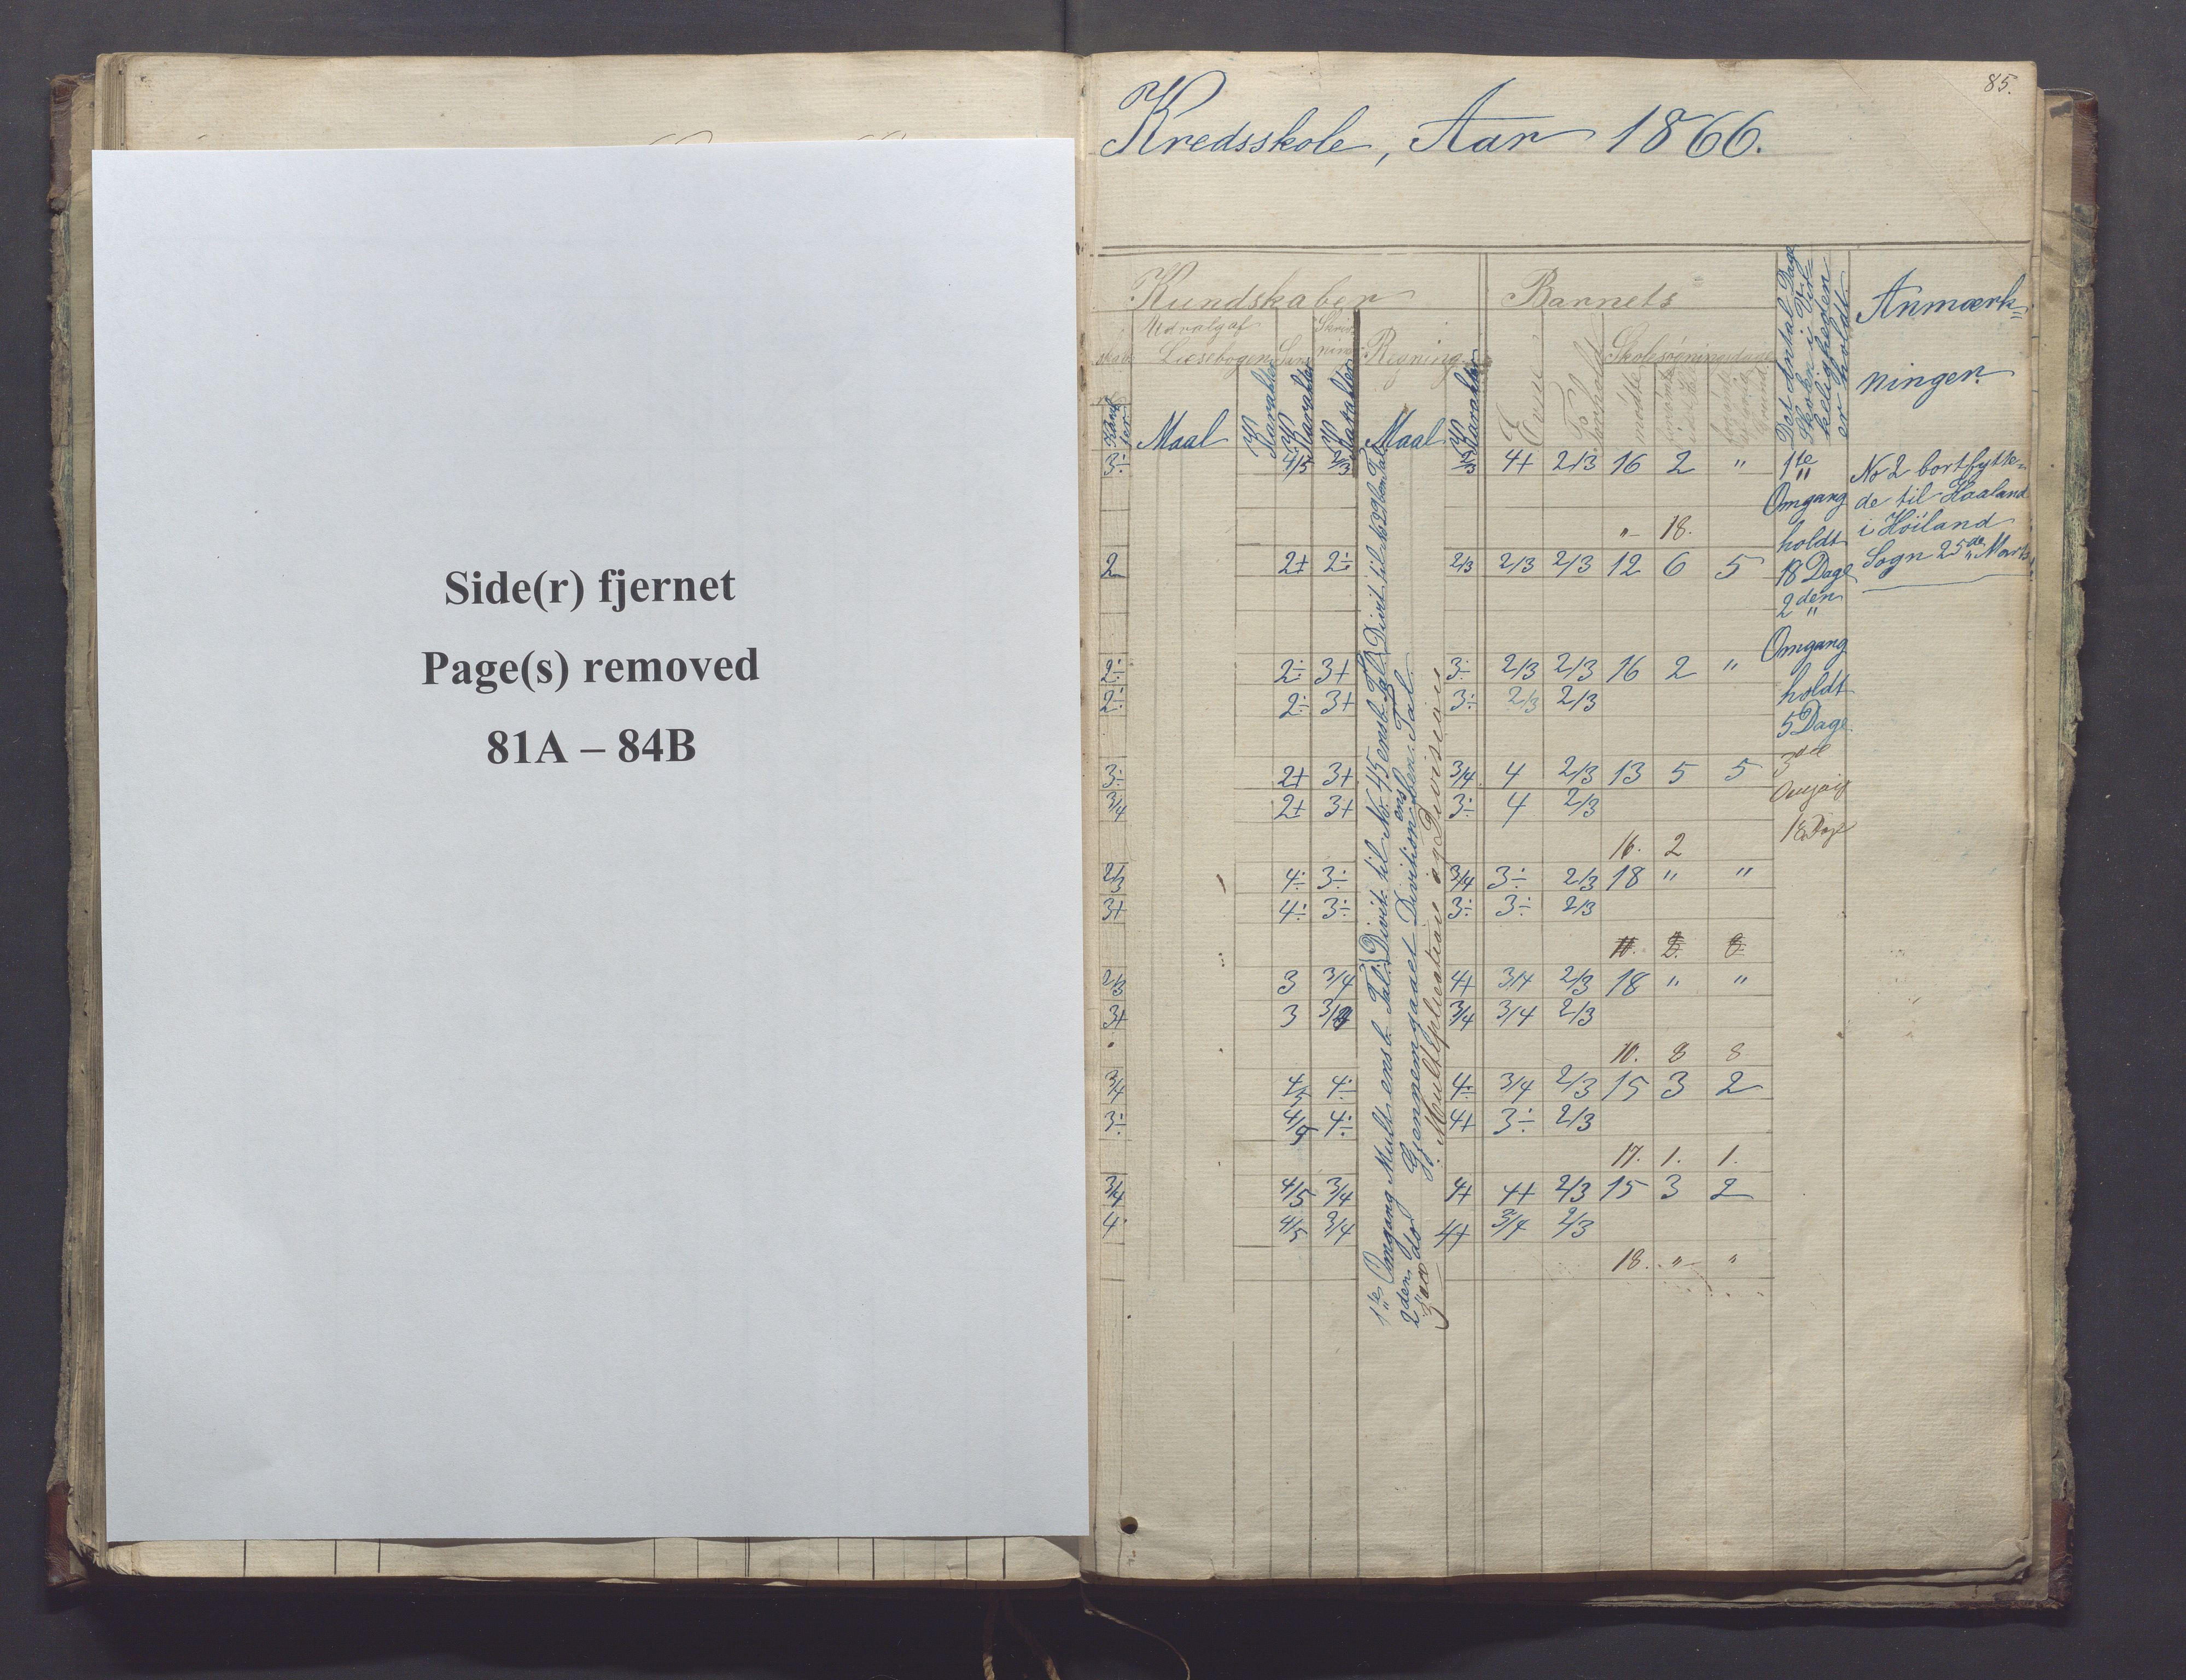 Side(r) fjernet
Page(s) removed
81A – 84B
85.
Kredsskole, Aar 1866.
Kundskaber
Barnets
Det Antal Dage
Skolen i Vir-
keligheden
er holdt.
Anmærk=
ningen.
Udvalg af
Læsebogen
Skriv-
ning
Regning
Evne
Forhold
Skolesøgningsdage
mødte
Maal
Karakter
Karakter
Karakter
Maal
Karakter
3÷ 4/5 2/3 2/3 4+ 2/3 16 2 "
" 18.
2 2+ 2÷ 2/3 2/3 2/3 12 6 5
2÷ 2÷ 3+ 3÷ 2/3 2/3 16 2 "
2÷ 2÷ 3+ 3÷ 2/3 2/3
3÷ 2+ 3+ 3/4 4 2/3 13 5 5
3/4 2+ 3+ 3÷ 4 2/3
16. 2
2/3 4÷ 3÷ 3/4 3÷ 2/3 18 " "
3+ 4÷ 3÷ 3÷ 3÷ 2/3
2/3 3 3/4 4+ 3/4 2/3 18 " "
3+ 3 3/4 3/4 3/4 2/3
10. 8 8
3/4 4/5 4÷ 4÷ 3/4 2/3 15 3 2
3÷ 4/5 4÷ 4+ 3÷ 2/3
17. 1. 1.
3/4 4/5 3/4 4+ 4+ 2/3 15 3 2
4 4/5 3/4 4+ 3/4 2/3
18. " "
1te Omgang Mult. ensb. Tal. Divit. til No 45 ensb. Tal
2den do Gjennemgaaet Division ensben. Tal
3die Multiplication og Division
1te
Omgang
holdt
18 Dage
2den
Omgang
holdt
5 Dage
3die
Omgang
18 Dage
No 2 bortflytte-
de til Haaland
i Höiland
Sogn 25de Marts